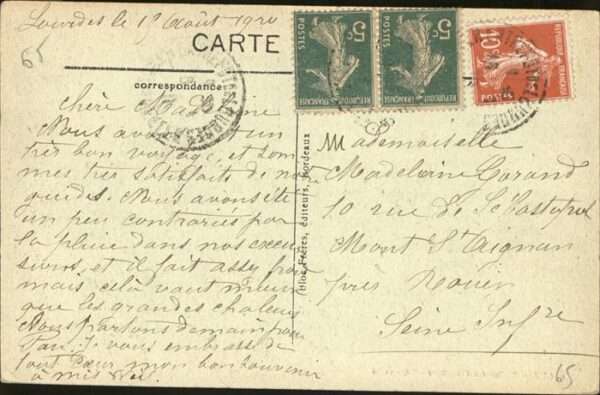 Lourdes le 1er Août 1920
65
CARTE
correspondance
chère Madeleine
Nous avons un
très bon voyage, et som
mes très satisfaits de no
guides. Nous avons été
un peu contrariés par
la pluie dans nos excur
sions, et il fait assez froid
mais cela vaut mieux
que les grandes chaleurs
Nous partons demain pour
Je vous embrasse de
tout cœur, mon bon souvenir
à
5c
POSTES
REPUBLIQUE FRANÇAISE
5c
POSTES
REPUBLIQUE FRANÇAISE
10c
POSTES
REPUBLIQUE FRANÇAISE
Bloc Frères, éditeurs, Bordeaux
Mademoiselle
Madeleine
10 rue de
Mont St Aignan
près Rouen
Seine Infre
65